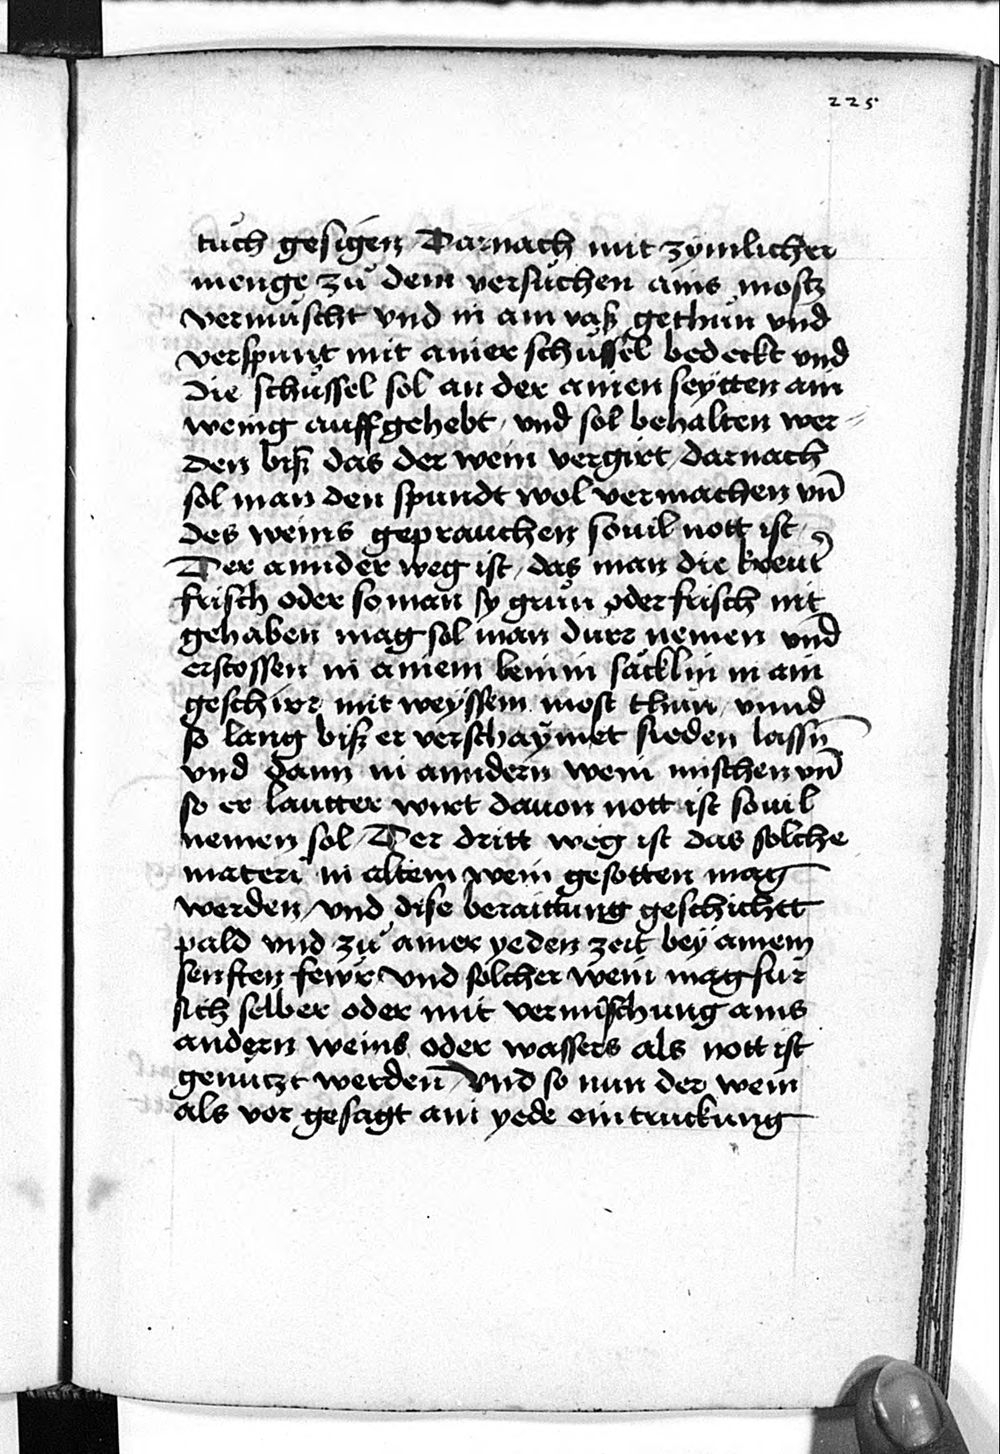 225
tuͦch gesigen / Darnach mit zymlicher
menge zuͦ dem versuͦchen ains mostz
vermuͤscht vnd in ain vaß gethuͦn vnd
verspunt mit ainer schuͤssel bedeckt vnd
die schuͤssel sol an der ainen seytten ain
wenig auffgehebt / vnd sol behalten wer=
den biß das der wein vergirt / darnach
sol man den spundt wol vermachen vn̄
des weins geprauchen souil nott ist
Der annder weg ist / das man die kreut̄
frisch oder so man sy gruͤn oder frisch nit
gehaben mag sol man durr nemen vnd
erstossen in ainem leinin saͤcklin in ain
geschirr mit weyssem most thun / vnnd
so lang biß er verschaymet sieden lassn̄
vnd dann in anndern wein mischen vn̄
so er lautter wirt dauon nott ist souil
nemen sol / Der dritt weg ist das solche
materi in altem wein gesotten mag
werden / vnd dise beraittung geschichtt
pald vnd zuͦ ainer yeden zeit bey ainem
senften fewr / Vnd solcher wein mag fur
sich selber oder mit vermischung ains
andern weins oder wassers als nott ist
genutzt werden̄ / Vnd so nun der wein
als vor gesagt ain yede eintruckung